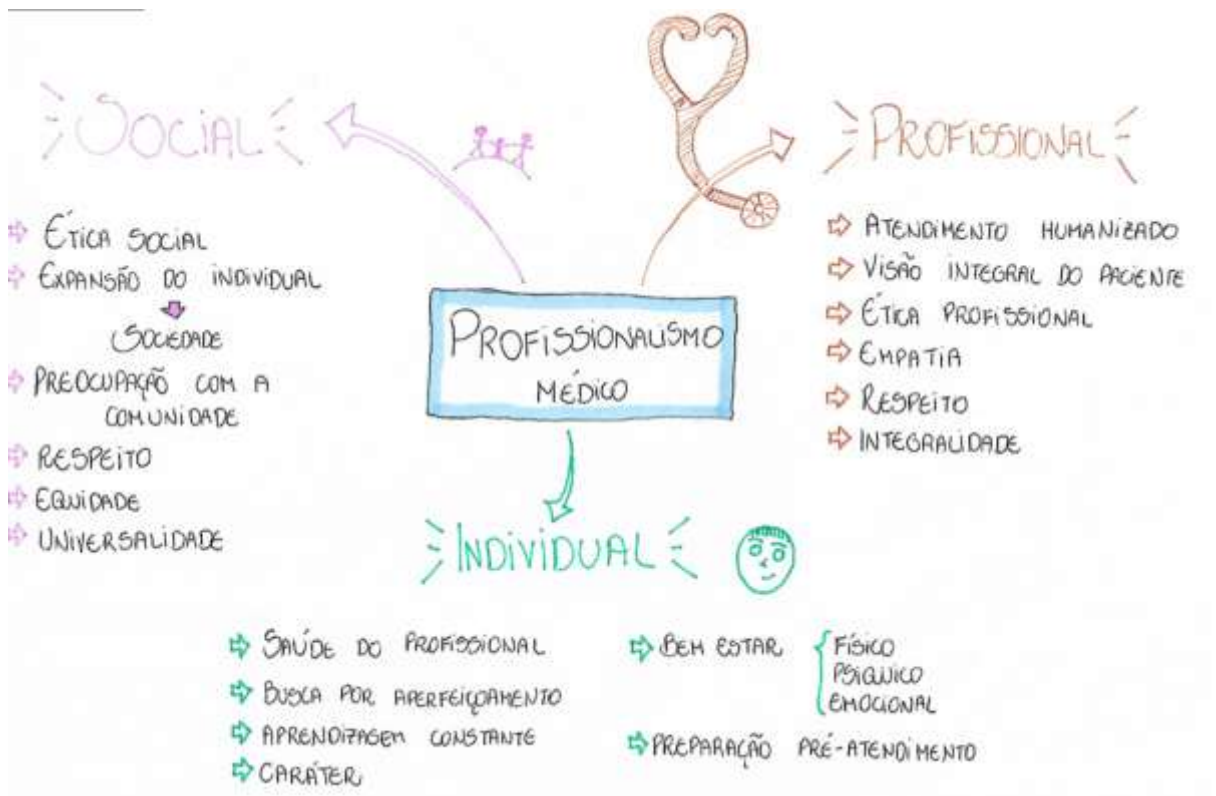 SOCIAL
ÉTICA SOCIAL
EXPANSÃO DO INDIVIDUAL
SOCIEDADE
PREOCUPAÇÃO COM A
COMUNIDADE
RESPEITO
EQUIDADE
UNIVERSALIDADE
PROFISSIONALISMO
MÉDICO
PROFISSIONAL
ATENDIMENTO HUMANIZADO
VISÃO INTEGRAL DO PACIENTE
ÉTICA PROFISSIONAL
EMPATIA
RESPEITO
INTEGRALIDADE
INDIVIDUAL
SAÚDE DO PROFISSIONAL
BUSCA POR APERFEIÇOAMENTO
APRENDIZAGEM CONSTANTE
CARÁTER
BEM ESTAR
FÍSICO
PSIQUICO
EMOCIONAL
PREPARAÇÃO PRÉ-ATENDIMENTO